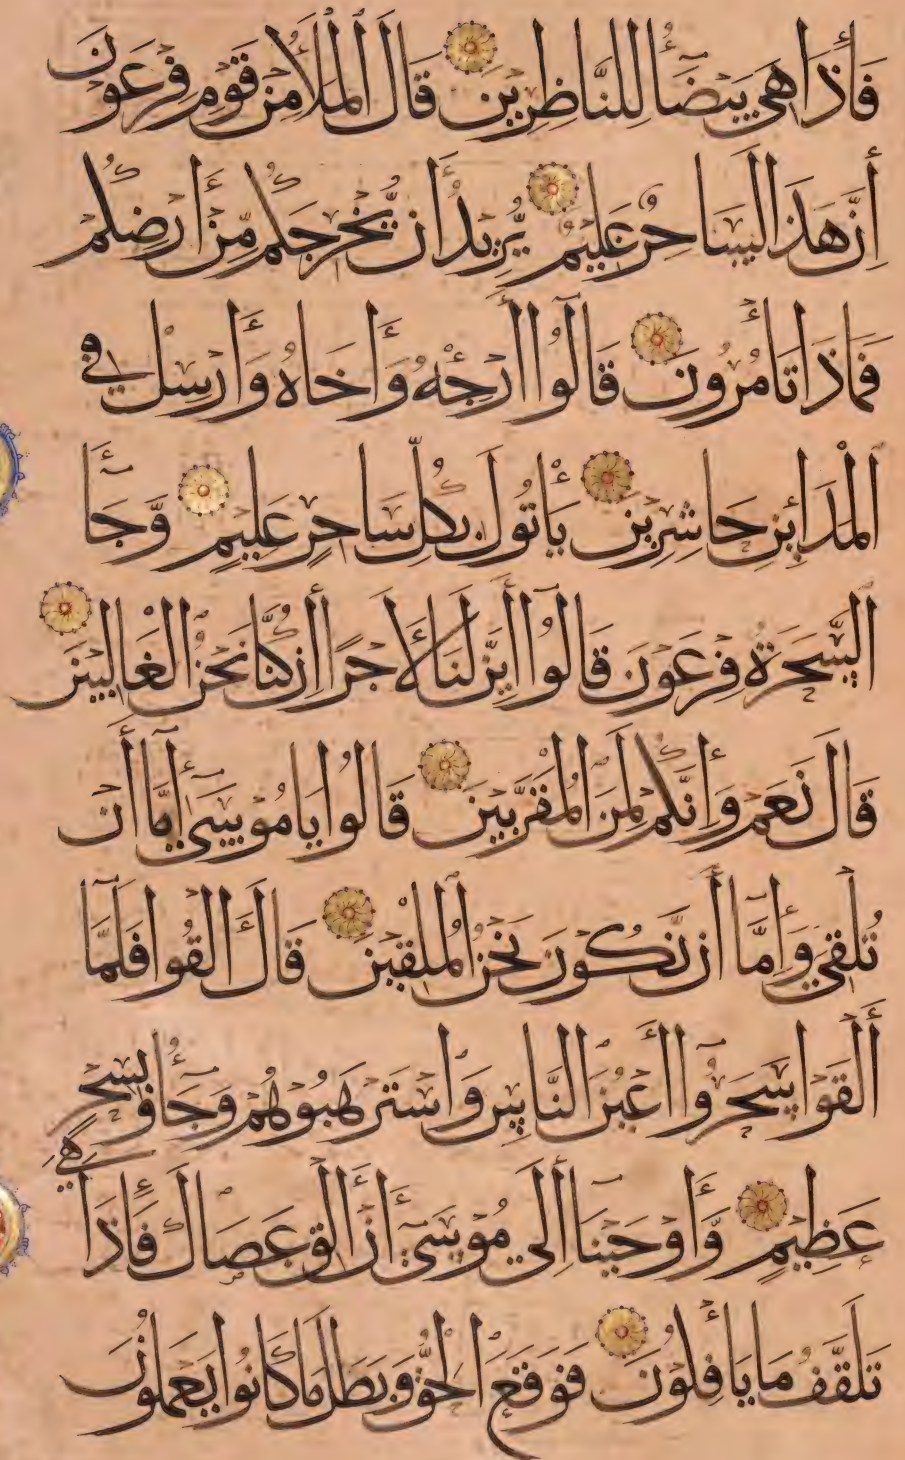 فَإِذَا هِيَ بَيْضَاءُ لِلنَّاظِرِينَ قَالَ الْمَلَأُ مِنْ قَوْمِ فِرْعَوْنَ
إِنَّ هَذَا لَسَاحِرٌ عَلِيمٌ يُرِيدُ أَنْ يُخْرِجَكُمْ مِنْ أَرْضِكُمْ
فَمَاذَا تَأْمُرُونَ قَالُوا أَرْجِهْ وَأَخَاهُ وَأَرْسِلْ فِي
الْمَدَائِنِ حَاشِرِينَ يَأْتُوكَ بِكُلِّ سَاحِرٍ عَلِيمٍ وَجَاءَ
السَّحَرَةُ فِرْعَوْنَ قَالُوا أَئِنَّ لَنَا لَأَجْرًا إِنْ كُنَّا نَحْنُ الْغَالِبِينَ
قَالَ نَعَمْ وَإِنَّكُمْ لَمِنَ الْمُقَرَّبِينَ قَالُوا يَا مُوسَى إِمَّا أَنْ
تُلْقِيَ وَإِمَّا أَنْ نَكُونَ نَحْنُ الْمُلْقِينَ قَالَ أَلْقُوا فَلَمَّا
أَلْقَوْا سَحَرُوا أَعْيُنَ النَّاسِ وَاسْتَرْهَبُوهُمْ وَجَاءُوا بِسِحْرٍ
عَظِيمٍ وَأَوْحَيْنَا إِلَى مُوسَى أَنْ أَلْقِ عَصَاكَ فَإِذَا هِيَ
تَلَقَّفُ مَا يَأْفِكُونَ فَوَقَعَ الْحَقُّ وَبَطَلَ مَا كَانُوا يَعْمَلُونَ